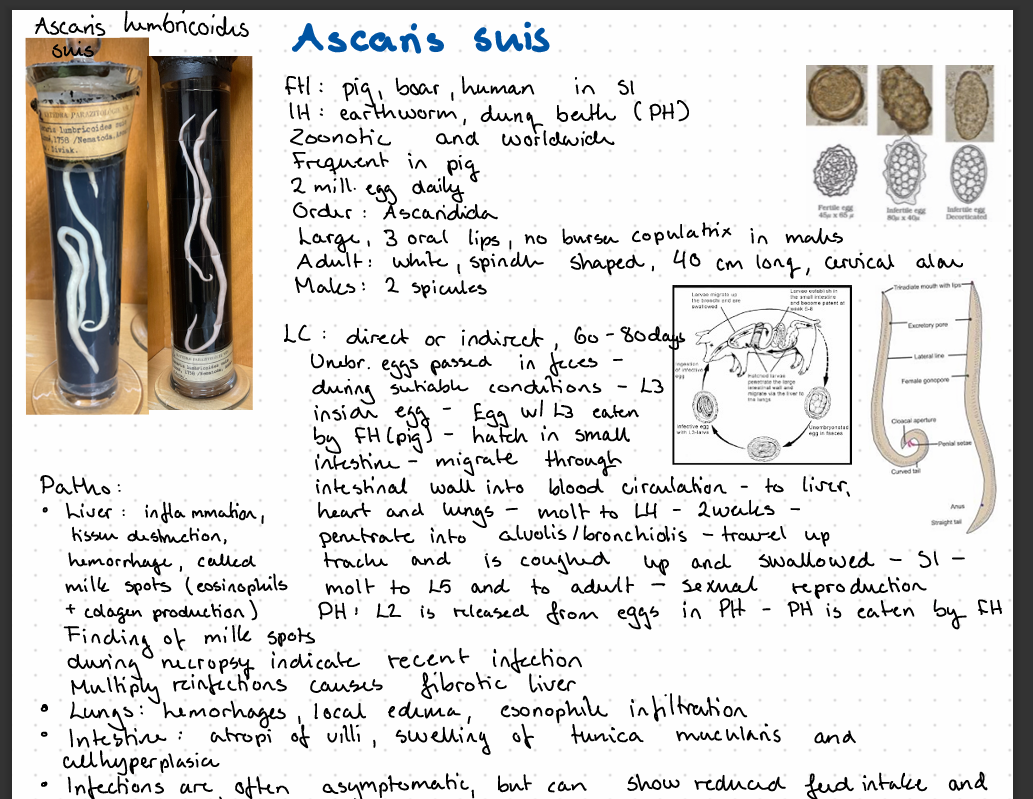 Ascaris lumbricoidus
suis
Ascaris suis
FH: pig, boar, human in SI
IH: earthworm, dung beath (PH)
Zoonotic and worldwide
Frequent in pig
2 mill. egg daily
Order: Ascaridida
Large, 3 oral lips, no bursa copulatrix in males
Adult: white, spindle shaped, 40 cm long, cervical alae
Males: 2 spicules
Fertile egg
45µ x 65µ
Infertile egg
80µ x 40µ
Infertile egg
Decorticated
LC: direct or indirect, 60-80days
Unebr. eggs passed in feces -
during suitable conditions - L3
inside egg - Egg w/ L3 eaten
by FH(pig) - hatch in small
intestine - migrate through
intestinal wall into blood circulation - to liver,
heart and lungs - molt to L4 - 2weeks -
penetrate into alvolis/bronchidis - travel up
trache and is coughed up and swallowed - SI -
molt to L5 and to adult - sexual reproduction
PH: L2 is released from eggs in PH - PH is eaten by FH
Larvae migrate up
the bronchi and are
swallowed
Larvae establish in
the small intestine
and become patent at
week 6-8
Ingestion
of infective
egg
Hatched larvae
penetrate the large
intestinal wall and
migrate via the liver to
the lungs
Infective egg
with L3-larva
Unembryonated
egg in faeces
Triradiate mouth with lips
Excretory pore
Lateral line
Female gonopore
Cloacal aperture
Penial setae
Curved tail
Anus
Straight tail
Patho:
• Liver: inflammation,
tissue destruction,
hemorrhage, called
milk spots (eosinophils
+ colagen production)
Finding of milk spots
during necropsy indicate recent infection
Multiply reinfections causes fibrotic liver
• Lungs: hemorrhages, local edema, esonophile infiltration
• Intestine: atropi of villi, swelling of tunica mucularis and
cellhyperplasia
• Infections are often asymptomatic, but can show reduced feed intake and